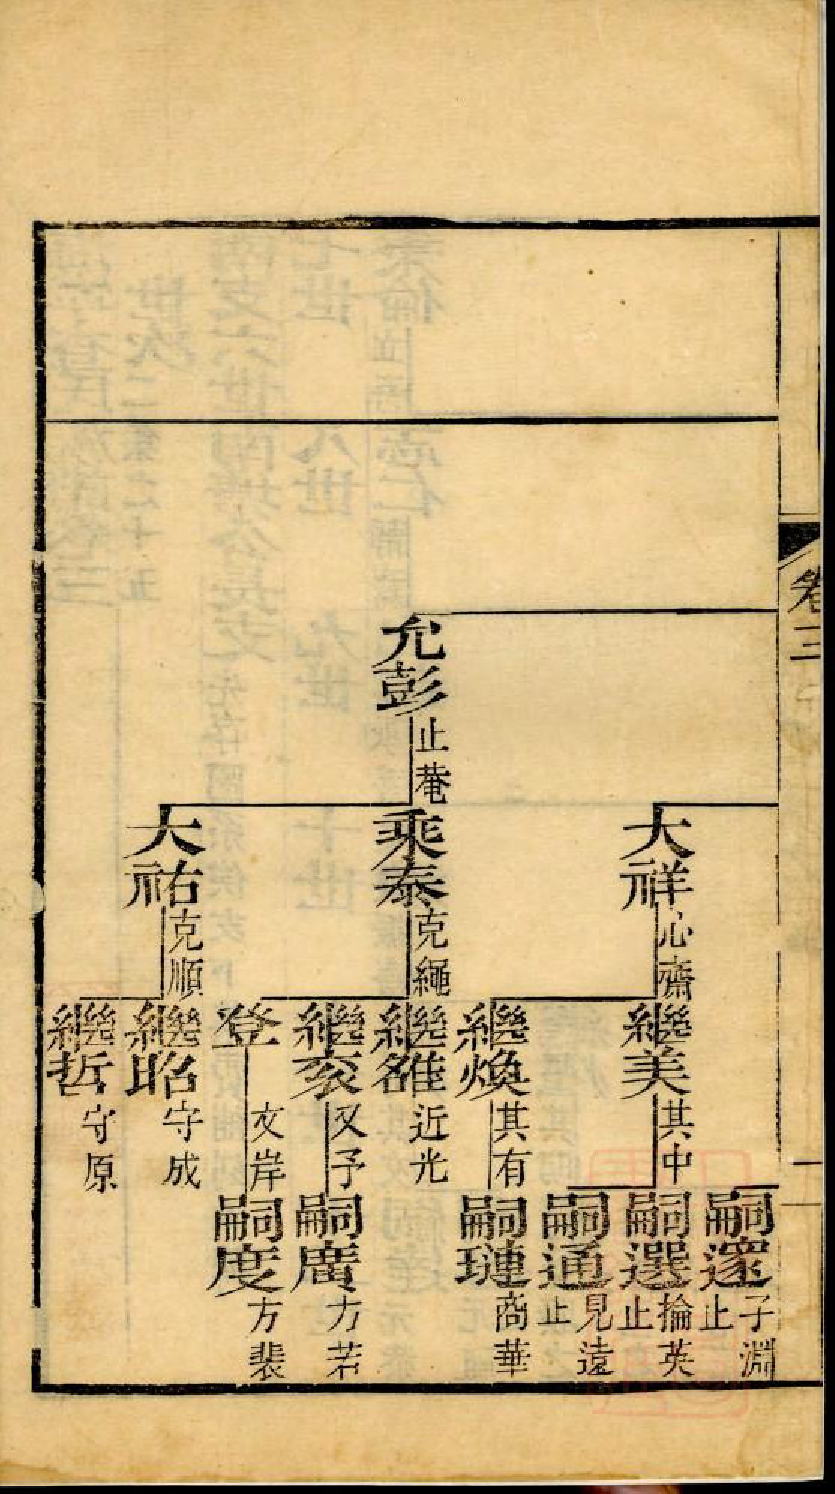 卷三
允彭 止菴
大祥 心齋
秉泰 克繩
大祐 克順
繼美 其中
繼煥 其有
繼雒 近光
繼亥 又予
登 文岸
繼昭 守成
繼哲 守原
嗣邃 子淵 止
嗣選 掄英 止
嗣通 見遠 止
嗣璉 商華
嗣廣 方若
嗣度 方裴